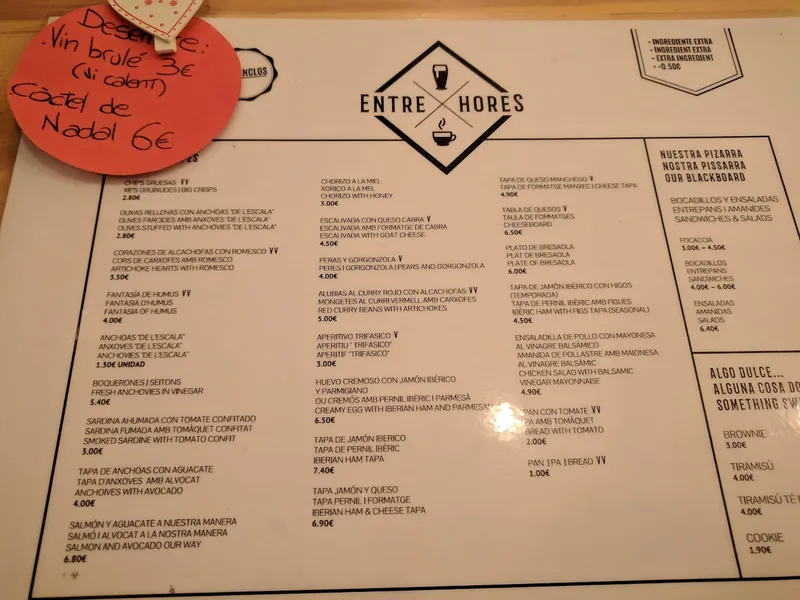 Desembre:
Vin brulé 3€
(vi calent)
Càctel de
Nadal 6€
ENTRE HORES
- INGREDIENTE EXTRA
- INGREDIENT EXTRA
- EXTRA INGREDIENT
- -0.50€
CHIPS GRUESAS VV
XIPS GRUIXUDES | BIG CRISPS
2.80€
OLIVAS RELLENAS CON ANCHOAS "DE L'ESCALA"
OLIVES FARCIDES AMB ANXOVES "DE L'ESCALA"
OLIVES STUFFED WITH ANCHOVIES "DE L'ESCALA"
2.80€
CORAZONES DE ALCACHOFAS CON ROMESCO VV
CORS DE CARXOFES AMB ROMESCO
ARTICHOKE HEARTS WITH ROMESCO
3.50€
FANTASÍA DE HUMUS VV
FANTASIA D'HUMUS
FANTASIA OF HUMUS
4.00€
ANCHOAS "DE L'ESCALA"
ANXOVES "DE L'ESCALA"
ANCHOVIES "DE L'ESCALA"
1.30€ UNIDAD
BOQUERONES | SEITONS
FRESH ANCHOVIES IN VINEGAR
5.40€
SARDINA AHUMADA CON TOMATE CONFITADO
SARDINA FUMADA AMB TOMÀQUET CONFITAT
SMOKED SARDINE WITH TOMATO CONFIT
3.00€
TAPA DE ANCHOAS CON AGUACATE
TAPA D'ANXOVES AMB ALVOCAT
ANCHOIVES WITH AVOCADO
4.00€
SALMÓN Y AGUACATE A NUESTRA MANERA
SALMÓ I ALVOCAT A LA NOSTRA MANERA
SALMON AND AVOCADO OUR WAY
6.80€
CHORIZO A LA MIEL
XORIÇO A LA MEL
CHORIZO WITH HONEY
5.00€
ESCALIVADA CON QUESO CABRA V
ESCALIVADA AMB FORMATGE DE CABRA
ESCALIVADA WITH GOAT CHEESE
4.50€
PERAS Y GORGONZOLA V
PERES I GORGONZOLA | PEARS AND GORGONZOLA
4.00€
ALUBIAS AL CURRY ROJO CON ALCACHOFAS VV
MONGETES AL CURRI VERMELL AMB CARXOFES
RED CURRY BEANS WITH ARTICHOKES
5.00€
APERITIVO TRIFASICO V
APERITIU "TRIFASICO"
APERITIF "TRIFASICO"
3.00€
HUEVO CREMOSO CON JAMÓN IBÉRICO
Y PARMIGIANO
OU CREMÓS AMB PERNIL IBÈRIC I PARMESÀ
CREAMY EGG WITH IBERIAN HAM AND PARMESAN
6.50€
TAPA DE JAMÓN IBERICO
TAPA DE PERNIL IBÈRIC
IBERIAN HAM TAPA
7.40€
TAPA JAMÓN Y QUESO
TAPA PERNIL I FORMATGE
IBERIAN HAM & CHEESE TAPA
6.90€
TAPA DE QUESO MANCHEGO V
TAPA DE FORMATGE MANXEC | CHEESE TAPA
4.90€
TABLA DE QUESOS V
TAULA DE FORMATGES
CHEESEBOARD
6.50€
PLATO DE BRESAOLA
PLAT DE BRESAOLA
PLATE OF BRESAOLA
6.00€
TAPA DE JAMÓN IBÉRICO CON HIGOS
(TEMPORADA)
TAPA DE PERNIL IBÈRIC AMB FIGUES
IBERIC HAM WITH FIGS TAPA (SEASONAL)
4.50€
ENSALADILLA DE POLLO CON MAYONESA
AL VINAGRE BALSÁMICO
AMANIDA DE POLLASTRE AMB MAIONESA
AL VINAGRE BALSÀMIC
CHICKEN SALAD WITH BALSAMIC
VINEGAR MAYONNAISE
4.90€
PAN CON TOMATE VV
PA AMB TOMÀQUET
BREAD WITH TOMATO
2.00€
PAN | PA | BREAD VV
1.00€
NUESTRA PIZARRA
NOSTRA PISSARRA
OUR BLACKBOARD
BOCADILLOS Y ENSALADAS
ENTREPANS I AMANIDES
SANDWICHES & SALADS
FOCACCIA
3.00€ - 4.50€
BOCADILLOS
ENTREPANS
SANDWICHES
4.00€ - 6.00€
ENSALADAS
AMANIDAS
SALADS
6.40€
ALGO DULCE...
ALGUNA COSA DO
SOMETHING SW
BROWNIE
3.00€
TIRAMISÚ
4.00€
TIRAMISÚ TÉ
4.00€
COOKIE
1.90€